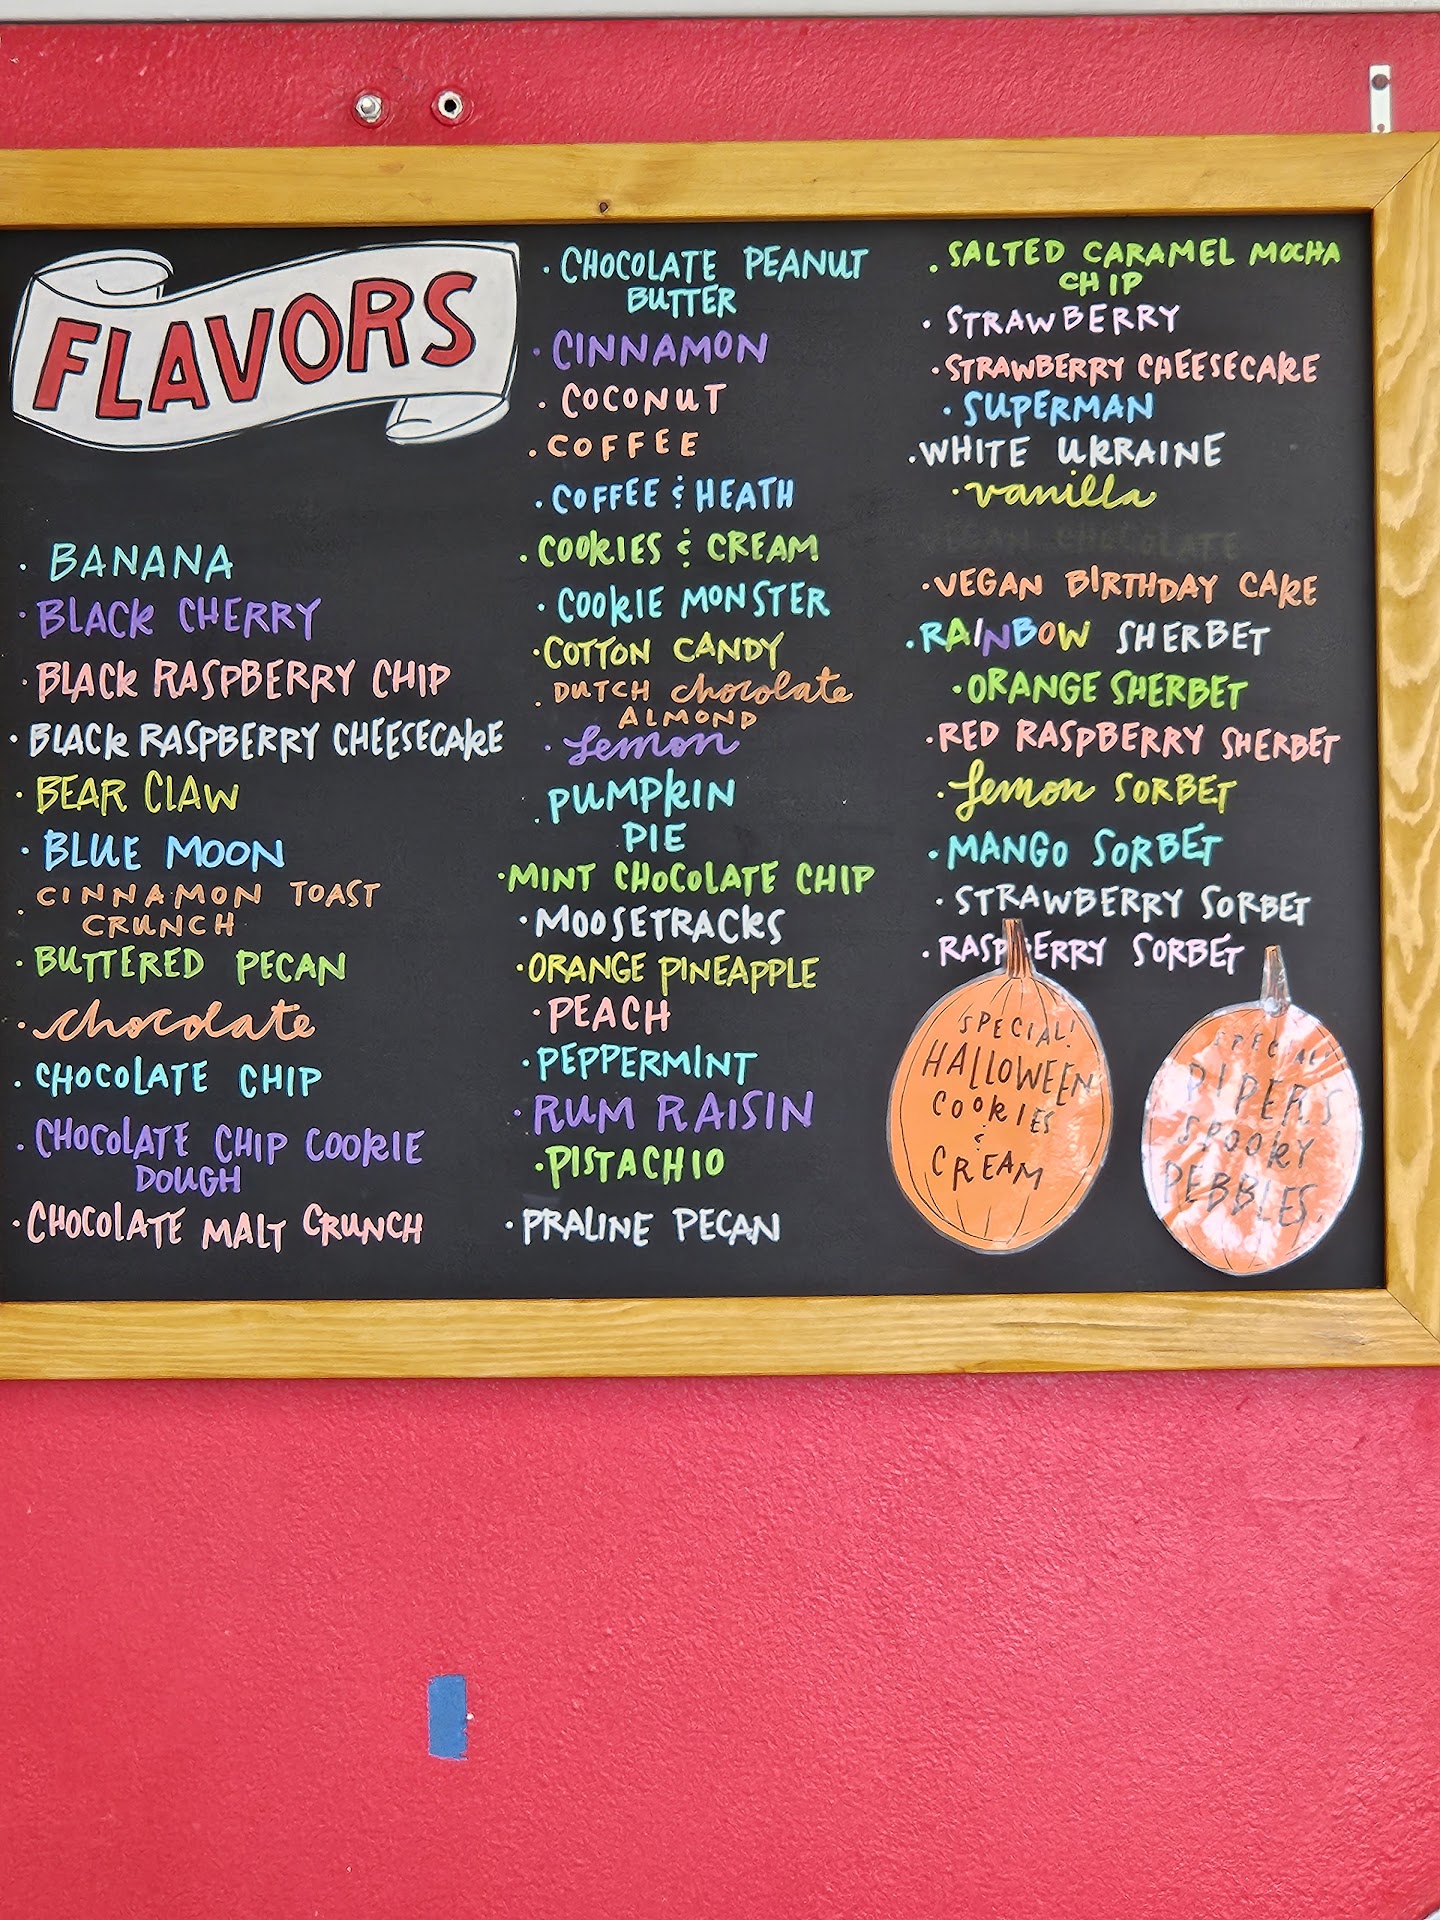 FLAVORS
· BANANA
· BLACK CHERRY
· BLACK RASPBERRY CHIP
· BLACK RASPBERRY CHEESECAKE
· BEAR CLAW
· BLUE MOON
· CINNAMON TOAST
CRUNCH
· BUTTERED PECAN
· chocolate
· CHOCOLATE CHIP
· CHOCOLATE CHIP COOKIE
DOUGH
· CHOCOLATE MALT CRUNCH
· CHOCOLATE PEANUT
BUTTER
· CINNAMON
· COCONUT
· COFFEE
· COFFEE & HEATH
· COOKIES & CREAM
· COOKIE MONSTER
· COTTON CANDY
· DUTCH chocolate
ALMOND
· Lemon
· PUMPKIN
PIE
· MINT CHOCOLATE CHIP
· MOOSETRACKS
· ORANGE PINEAPPLE
· PEACH
· PEPPERMINT
· RUM RAISIN
· PISTACHIO
· PRALINE PECAN
· SALTED CARAMEL MOCHA
CHIP
· STRAWBERRY
· STRAWBERRY CHEESECAKE
· SUPERMAN
· WHITE UKRAINE
· vanilla
VEGAN CHOCOLATE
· VEGAN BIRTHDAY CAKE
· RAINBOW SHERBET
· ORANGE SHERBET
· RED RASPBERRY SHERBET
· Lemon SORBET
· MANGO SORBET
· STRAWBERRY SORBET
· RASPBERRY SORBET
SPECIAL!
HALLOWEEN
COOKIES
&
CREAM
SPECIAL!
PIPER'S
SPOOKY
PEBBLES.